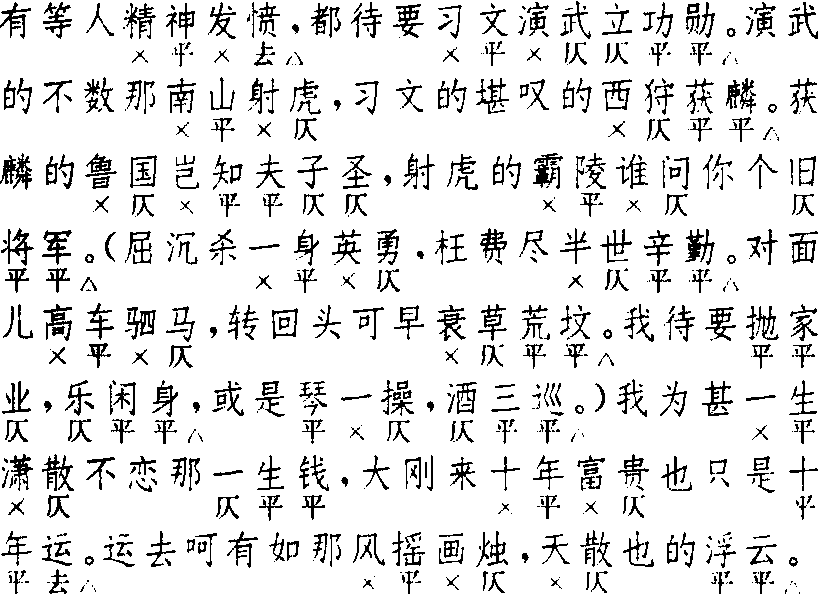 有等人精神发愤，都待要习文演武立功勋。演武
×平×去△ ×平×仄仄平平△
的不数那南山射虎，习文的堪叹的西狩获麟。获
×平×仄 ×仄平平△
麟的鲁国岂知夫子圣，射虎的霸陵谁问你个旧
×仄×平平仄仄 ×平×仄 仄
将军。（屈沉杀一身英勇，枉费尽半世辛勤。对面
平平△ ×平×仄 ×仄平平△
儿高车驷马，转回头可早衰草荒坟。我待要抛家
×平×仄 ×仄平平△ 平平
业，乐闲身，或是琴一操，酒三巡。）我为甚一生
仄 仄平平△ 平×仄 仄平平△ ×平
潇散不恋那一生钱，大刚来十年富贵也只是十
×仄 仄平平 ×平×仄 平
年运。运去呵有如那风摇画烛，天散也的浮云。
平去△ ×平×仄 ×仄 平平△